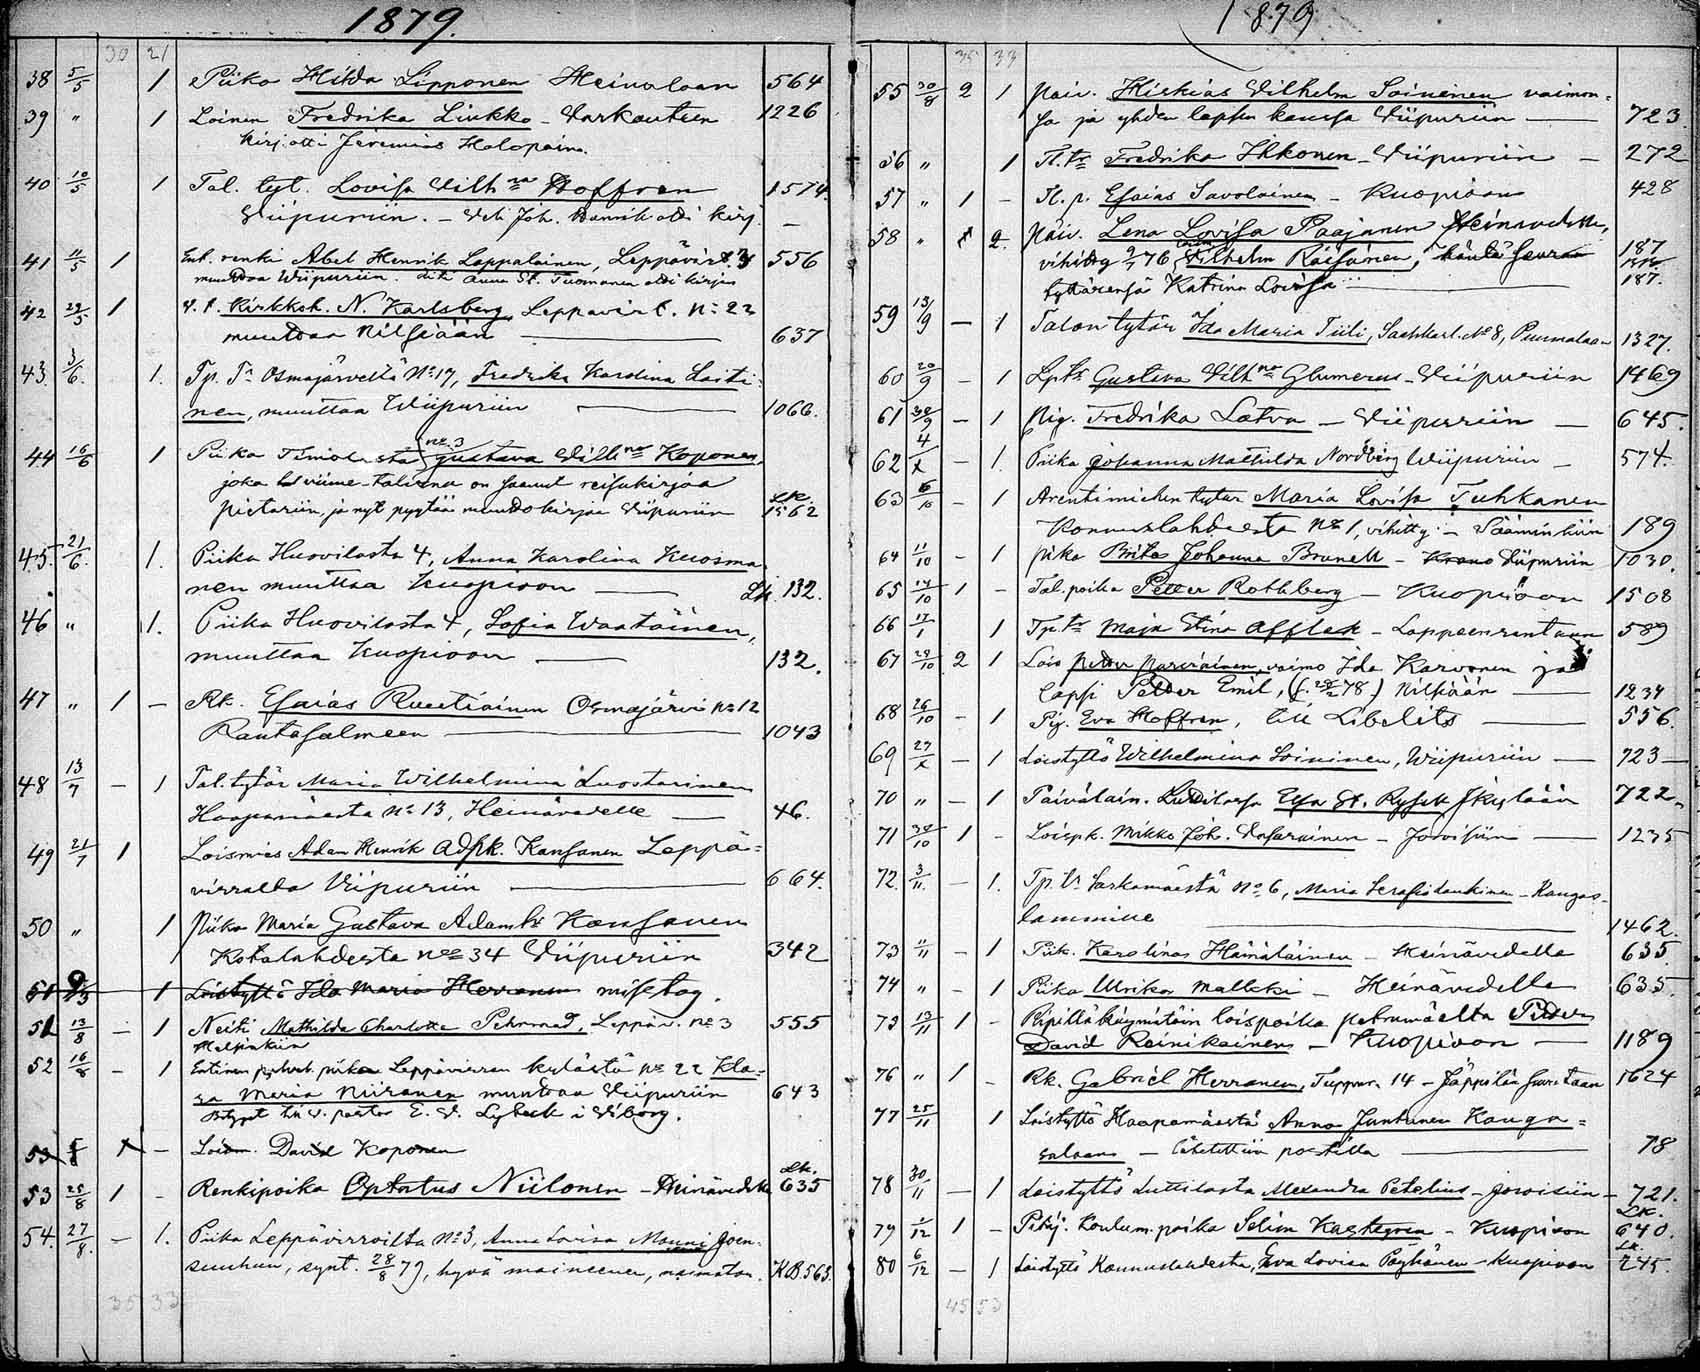 1879.
30 21
38 5/5 1 Piika Hilda Lipponen Heinolaan 564
39 " 1 Loinen Fredrika Linkko - Varkauteen 1226
Kirj. otti Jeremias Holopainen.
40 10/5 1 Tal. tyt. Lovisa Vilhna Hoffren 1574.
Viipuriin. - Veli Joh. Henrik otti kirj. -
41 11/5 1 Ent. renki Abel Henrik Lappalainen, Leppävirt. 3 556
muuttaa Wiipuriin. Anna St. Tuomanen otti kirjan
42 22/5 1 V. t. Kirkkoh. N. Karlsberg, Leppävirt. N:22
muuttaa Nilsiään 637
43. 3/6. 1. Tp. Tr Osmajärveltä No:17, Fredrika Karolina Laiti-
nen, muuttaa Wiipuriin 1066.
44 16/6 1 Piika Timolasta no. 3 Gustava Vilhna Koponen,
joka viime talvena on saanut reisukirjaa
Pietariin, ja nyt pyytää muuttokirjaa Viipuriin Lk. 1562
45. 21/6. 1. Piika Huovilasta 4, Anna Karolina Kuosma-
nen muuttaa Kuopioon Lk. 132.
46 " 1. Piika Huovilasta 4, Sofia Waatäinen,
muuttaa Kuopioon 132.
47 " 1 - Rk. Esaias Ruuttiainen Osmajärvi No 12
Rantasalmeen 1043
48 13/7 - 1 Tal. tytär Maria Wilhelmina Luostarinen
Haapamäestä No: 13, Heinävedelle 46.
49 21/7 1 Loismies Adam Henrik Adpk. Kansanen Leppä-
virralta Viipuriin 664.
50 " 1 Piika Maria Gustava Adamtr Kansanen
Kotalahdesta No 34 Viipuriin 342
51 1 Loistyttö Ida Maria Herranen misstag.
51 13/8 - 1 Neiti Mathilda Charlotta Pehrman, Leppäv. No 3 555
Helsinkiin
52 16/8 - 1 Entinen palvel. piika Leppävirran kylästä No 22 Kla-
ra Maria Niiranen muuttaa Viipuriin 643
Betyget till v. pastor E. V. Lybeck i Viborg.
53 - Loism. David Koponen
53 25/8 1 - Renkipoika Optatus Niilonen - Heinävedelle Lk. 635
54. 27/8. - 1. Piika Leppävirroilta No:3, Anna Lovisa Mauni Joen-
suuhun, synt. 28/8 79, hyvä maineinen, naimaton. KB 563.
35 33
1879
35 33
55 30/8 2 1 Päiv. Hiskias Vilhelm Soininen vaimon-
sa ja yhden lapsen kanssa Viipuriin 723
56 " 1 Tl. tr Fredrika Ihkonen - Viipuriin - 272
57 " 1 - Tl. p. Esaias Savolainen - Kuopioon 428
58 " 2. Päiv. Lena Lovisa Paajanen Heinävedelle,
vihitty 76 Vilhelm Räisänen, häntä seuraa 187
tyttärensä Katrina Lovisa 187.
59 13/9 - 1 Talon tytär Ida Maria Tiili, Saahkarl. No 8, Puumalaan 1327.
60 20/9 - 1 Lptr. Gustava Vilhna Glumerus - Viipuriin 1469
61 30/9 - 1 Pig. Fredrika Latva - Viipuriin - 645.
62 4/X - 1. Piika Johanna Mathilda Nordberg Wiipuriin - 574.
63 6/10 - 1 Arentimiehen tytär Maria Lovisa Tuhkanen
Konnuslahdesta No 1, vihitty - Sääminkiin 189
64 11/10 - 1 Piika Britas Johanna Brunell - Viipuriin 1030.
65 14/10 1 - Tal. poika Petter Rothberg - Kuopioon 1508
66 17/1 1 Tp. tr Maja Stina Afflek - Lappeenrantaan 589
67 24/10 2 1 Lois Petter Parviainen, vaimo Ida Karvonen ja
lapsi Petter Emil, (s. 28/2 78) Nilsiään 1234
68 26/10 - 1 Pig. Eva Hoffren, till Libelits 556.
69 27/X - 1 Loistyttö Wilhelmina Soininen, Wiipuriin - 723 -
70 " - 1 Päivälain. Elsa St. Rysek 722.
71 30/10 1 - Loispk. Mikko Joh. Vasarainen - Joroisiin 1235
72. 3/11. - 1. Tp. tr Sarkamäestä No:6, Maria Serafia Laukinen - Kangas-
lammille 1462.
73 11/11 - 1 Piik. Karolina Hämäläinen - Heinävedelle 635.
74 " - 1 Piika Ulrika Malkki - Heinävedelle 635.
75 13/11 1 - Ripillä käymätöin loispoika Petrumäeltä Petter
David Reinikainen - Kuopioon 1189
76 " 1 - Rk. Gabriel Herranen, Tuppur. 14 - Jäppilän Suontaan 1624
77 25/11 1 Loistyttö Haapamäestä Anna Juntunen Kanga-
salaan - lähetettiin postilla 78
78 30/11 - 1 Loistyttö Luttilasta Alexandra Petelius - Joroisiin - 721.
79 1/12 1 - Pitäj. Koulum. poika Selim Kastegren - Kuopioon Lk. 640.
80 6/12 - 1 Loistyttö Konnuslahdesta, Eva Lovisa Pöyhönen - Kuopioon Lk. 245.
45 53